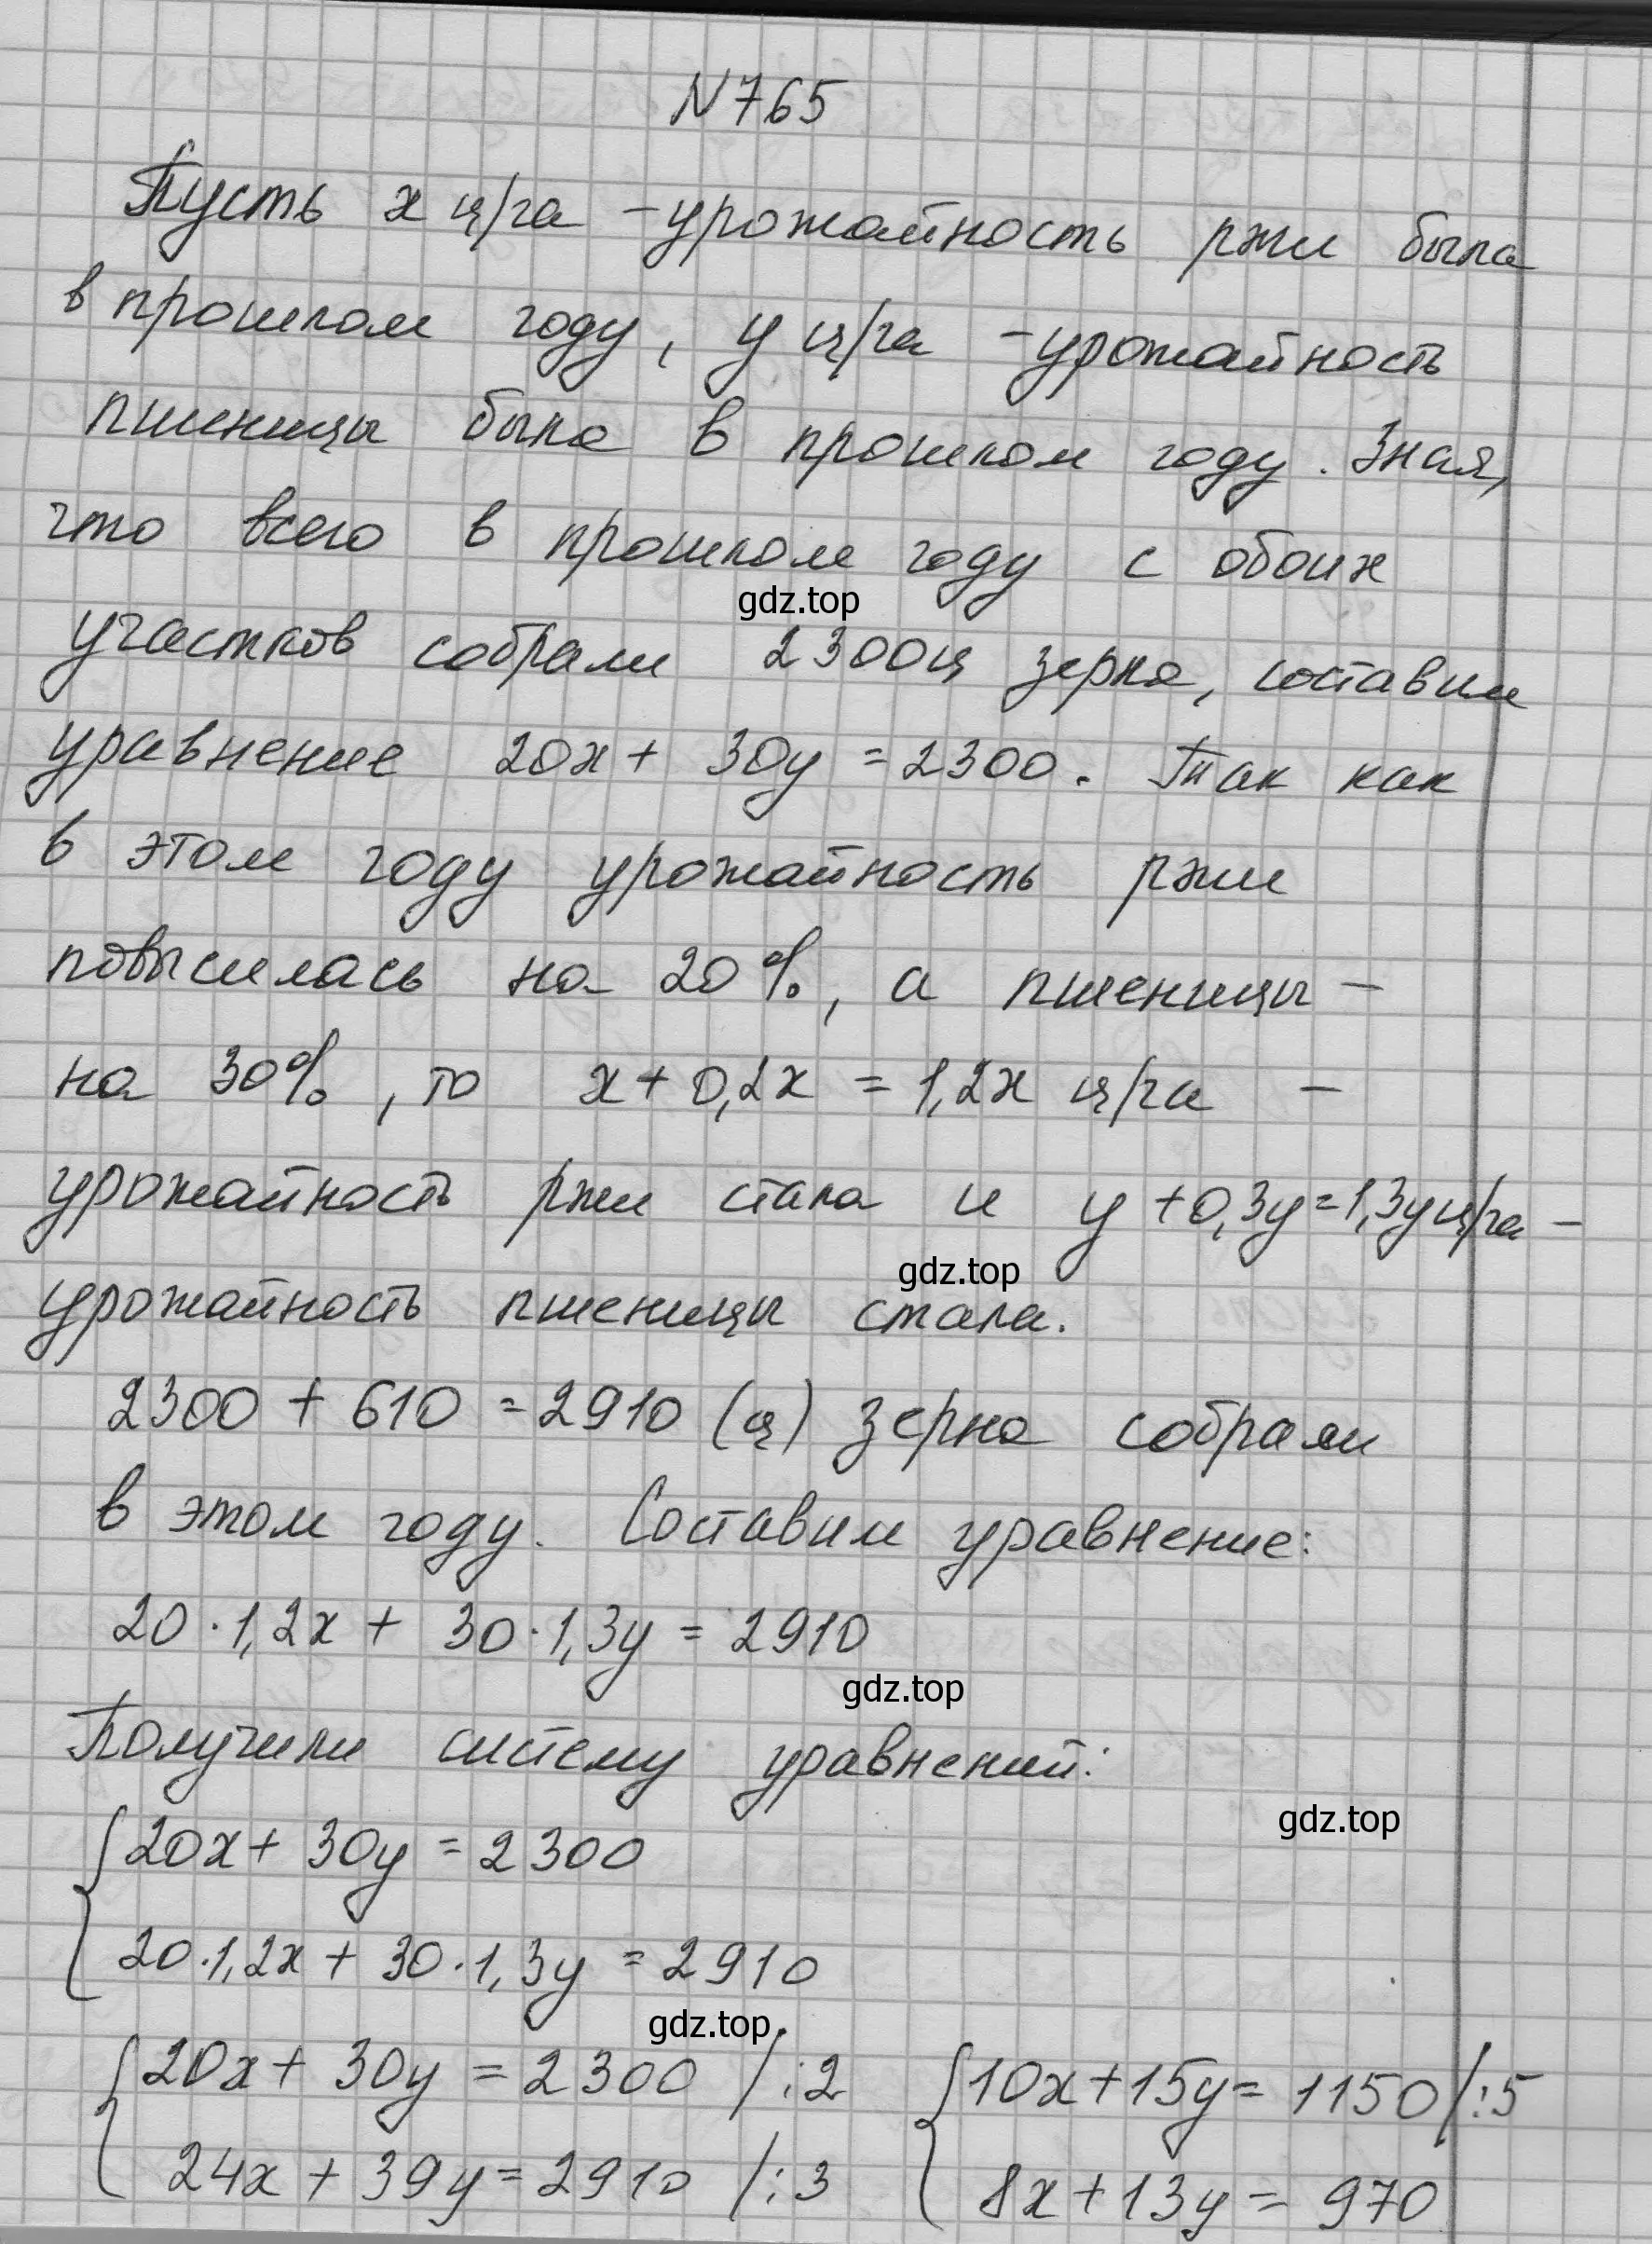 N 765
Пусть x ц/га – урожайность ржи была
в прошлом году, y ц/га – урожайность
пшеницы была в прошлом году. Зная,
что всего в прошлом году с обоих
gdz.top
участков собрали 2300ц зерна, составим
уравнение 20x + 30y = 2300. Так как
в этом году урожайность ржи
повысилась на 20%, а пшеницы –
на 30%, то x + 0,2x = 1,2x ц/га –
урожайность ржи стала и y + 0,3y = 1,3y ц/га –
gdz.top
урожайность пшеницы стала.
2300 + 610 = 2910 (ц) зерна собрали
в этом году. Составим уравнение:
20 · 1,2x + 30 · 1,3y = 2910
gdz.top
Получили систему уравнений:
gdz.top
{20x + 30y = 2300
20·1,2x + 30·1,3y = 2910
gdz.top
{20x + 30y = 2300 /:2 {10x + 15y = 1150 /:5
24x + 39y = 2910 /:3 8x + 13y = 970